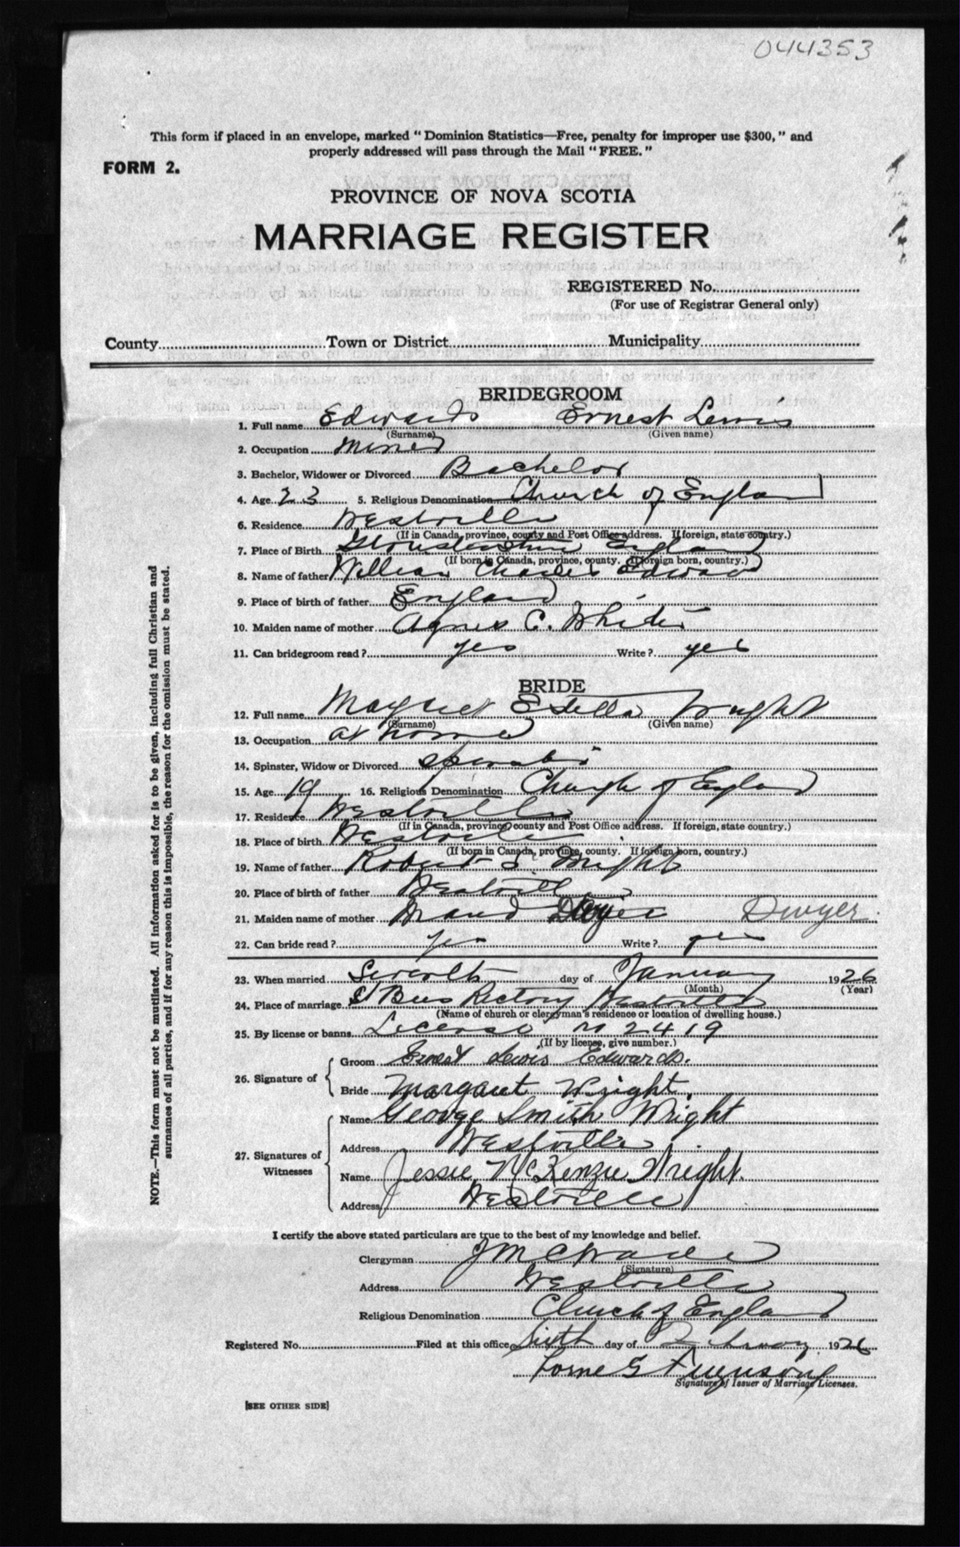 044353
This form if placed in an envelope, marked "Dominion Statistics—Free, penalty for improper use $300," and
properly addressed will pass through the Mail "FREE."
FORM 2.
PROVINCE OF NOVA SCOTIA
MARRIAGE REGISTER
REGISTERED No.
(For use of Registrar General only)
County Town or District Municipality
BRIDEGROOM
1. Full name Edwards Ernest Lewis
(Surname) (Given name)
2. Occupation Miner
3. Bachelor, Widower or Divorced Bachelor
4. Age 23 5. Religious Denomination Church of England
6. Residence Westville
(If in Canada, province, county and Post Office address. If foreign, state country.)
7. Place of Birth Gloustershire England
(If born in Canada, province, county. If foreign born, country.)
8. Name of father William Charles Edwards
9. Place of birth of father England
10. Maiden name of mother Agnes C. White
11. Can bridegroom read? yes Write? yes
BRIDE
12. Full name Margaret Estella Wright
(Surname) (Given name)
13. Occupation at home
14. Spinster, Widow or Divorced Spinster
15. Age 19 16. Religious Denomination Church of England
17. Residence Westville
(If in Canada, province county and Post Office address. If foreign, state country.)
18. Place of birth Westville
(If born in Canada, province, county. If foreign born, country.)
19. Name of father Robert S Wright
20. Place of birth of father Westville
21. Maiden name of mother Maud Dwyer Dwyer
22. Can bride read? yes Write? yes
23. When married day of January 1926
(Month) (Year)
24. Place of marriage St Bees Rectory Westville
(Name of church or clergyman's residence or location of dwelling house.)
25. By license or banns License no 2419
(If by license, give number.)
26. Signature of
Groom Ernest Lewis Edwards.
Bride Margaret Wright.
27. Signatures of Witnesses
Name George Smith Wright
Address Westville
Name Jessie McKenzie Wright.
Address Westville
I certify the above stated particulars are true to the best of my knowledge and belief.
Clergyman J M C Wade
(Signature)
Address Westville
Religious Denomination Church of England
Registered No. Filed at this office Sixth day of February 1926
Lorne G Ferguson
Signature of Issuer of Marriage Licenses.
[SEE OTHER SIDE]
NOTE.—This form must not be mutilated. All information asked for is to be given, including full Christian and
surnames of all parties, and if for any reason this is impossible, the reason for the omission must be stated.